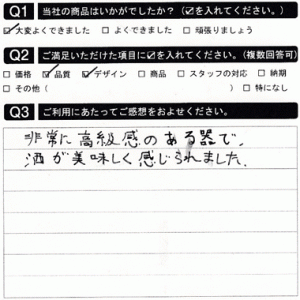 Q1 当社の商品はいかがでしたか？（☑を入れてください。）
☑大変よくできました □よくできました □頑張りましょう
Q2 ご満足いただけた項目に☑を入れてください。（複数回答可）
□価格 ☑品質 ☑デザイン □商品 □スタッフの対応 □納期
□その他（ ） □特になし
Q3 ご利用にあたってご感想をおよせください。
非常に高級感のある器で、
酒が美味しく感じられました。